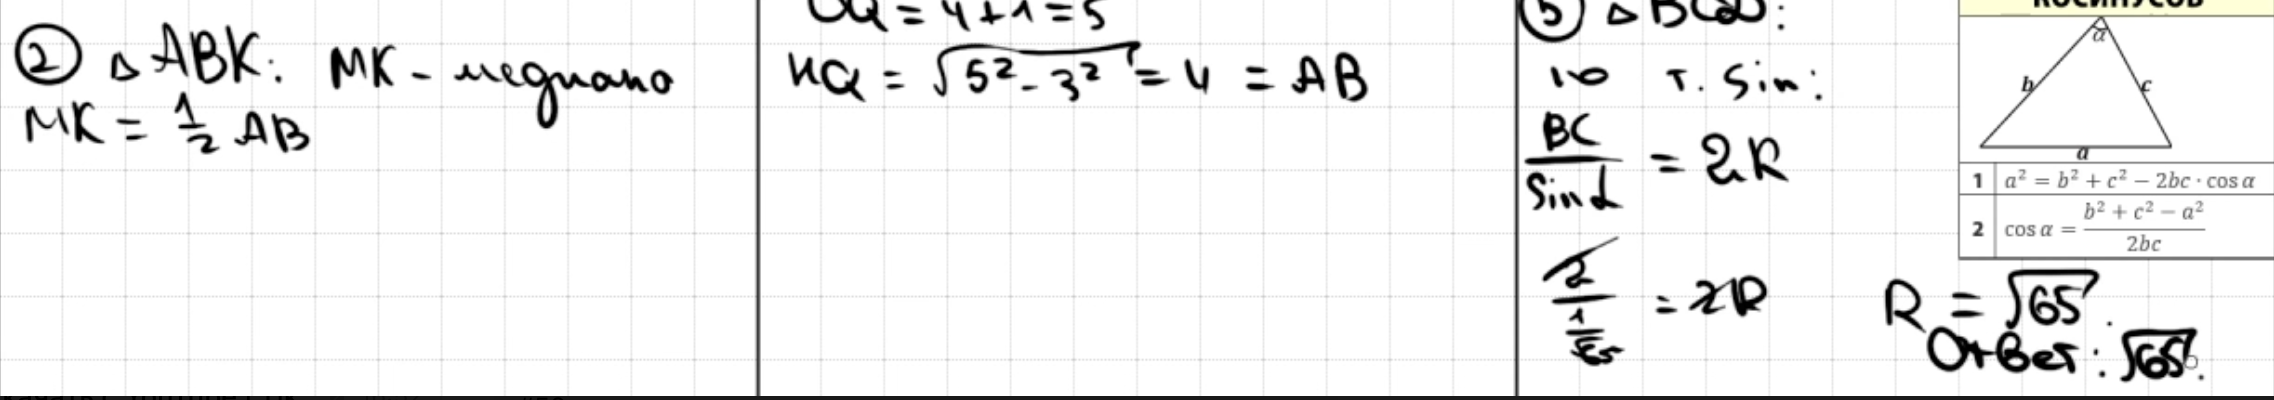 ② △ ABK: MK - медиана
MK = 1/2 AB
OQ = 4+1=5
HQ = √(5² - 3²) = 4 = AB
⑤ △ BCD:
по т. Sin:
BC/Sin α = 2R
2/(1/√65) = 2R
R = √65.
Ответ: √65.
КОСИНУСОВ
α
b
c
a
1 a² = b² + c² − 2bc · cos α
2 cos α = (b² + c² − a²)/2bc